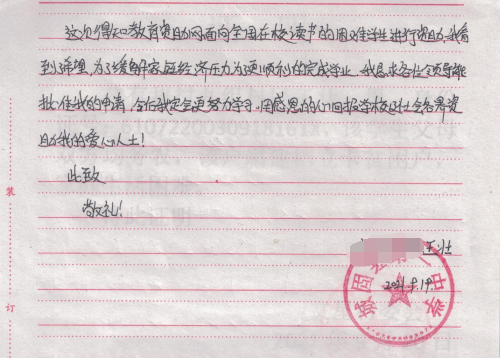 这次得知教育资助网面向全国在校读书的困难学生进行资助,我看
到希望,为了缓解家庭经济压力为更顺利的完成学业,我恳求各位领导能
批准我的申请,今后我定会更努力学习,用感恩的心回报学校及社会各界资
助我的爱心人士!
此致
敬礼!
王壮
2021.9.19.
城固县第
中学
装
订